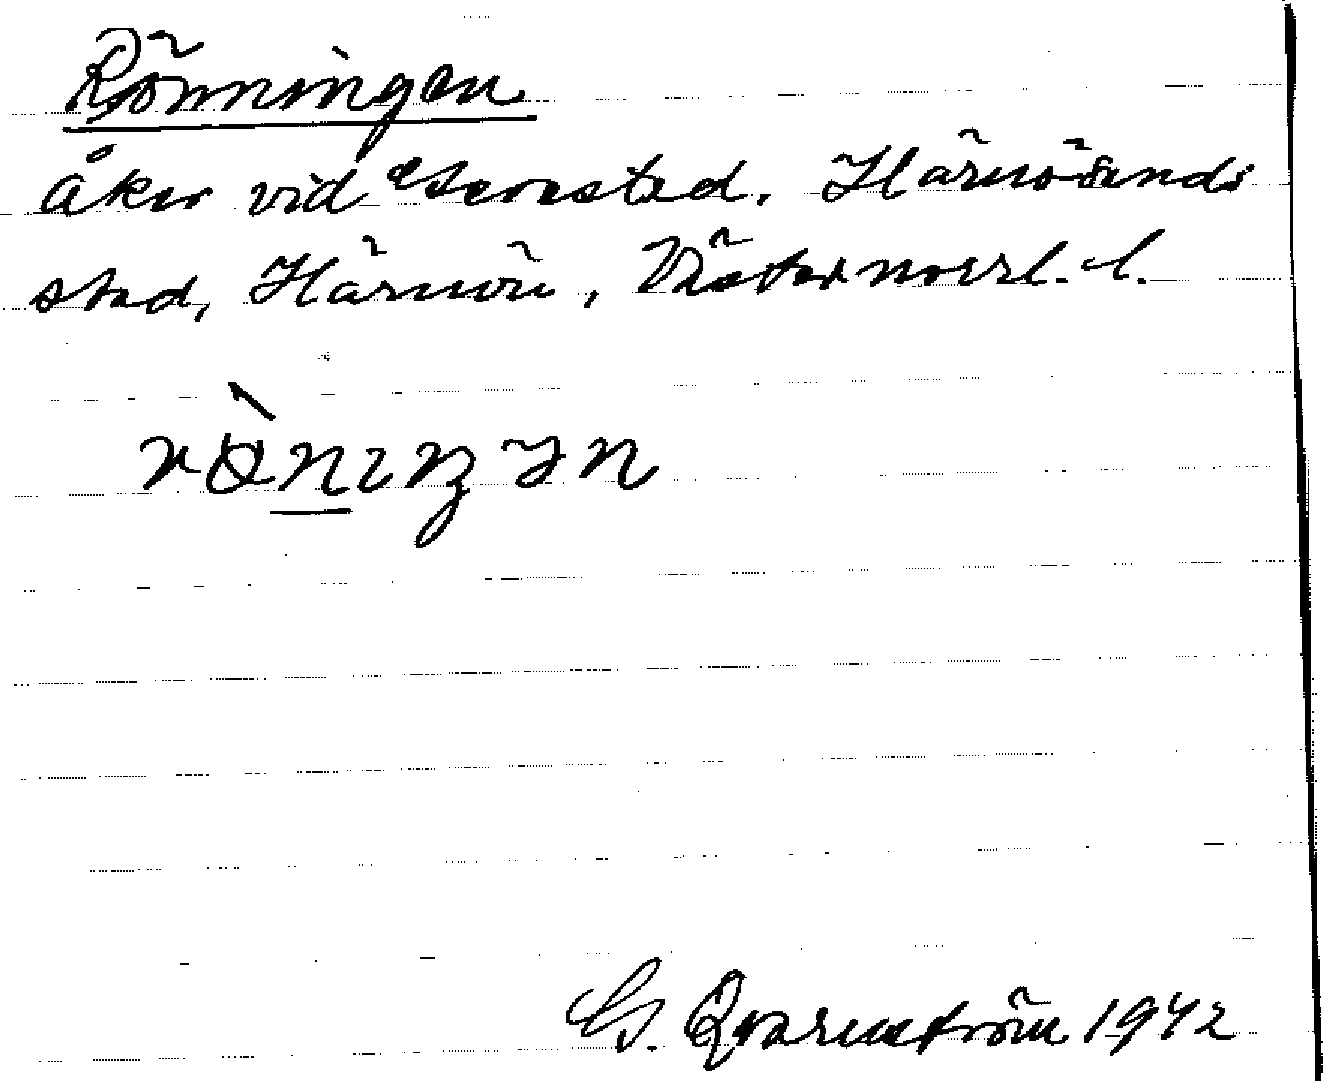 Rönningen
Åker vid Gerestad. Härnösands
stad, Härnön, Västernorrl. l.
G. Qvarnström 1942